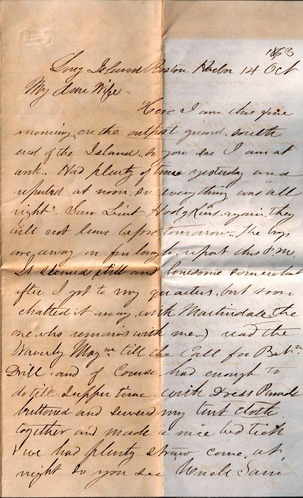 1863
Long Island Boston Harbor 14 Oct
My Dear Wife
Here I am this fine
morning on the outpost guard, south
end of the Island. So you see I am at
work. Had plenty of time yesterday and
reported at noon so everything was all
right. Saw Lieut Hodgkins again, they
will not leave before tomorrow. The boys
are away on furlough, report this P.M.
It seemed still and lonesome somewhat
after I got to my quarters, but soon
chatted it away with Martindale the
one who remains with me, read the
Waverly Mag. till the Call for Batn
Drill and of Course had enough to
do till Supper time with Dress Parade
buttoned and sewed my tent cloth
together and made a nice bed tick
I've had plenty straw come at
night So you see Uncle Sam